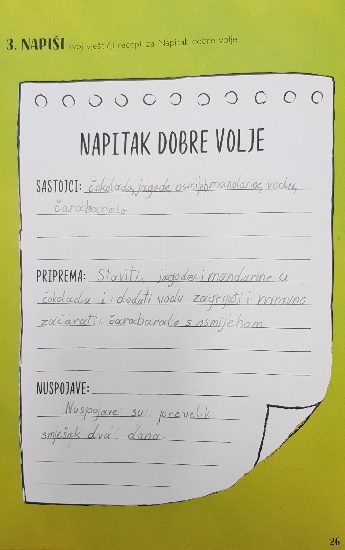 3. NAPIŠI svoj vještičji recept za Napitak dobre volje
NAPITAK DOBRE VOLJE
SASTOJCI: čokolada, jagode, osmijeh, mandarine, voda,
čarabarala
PRIPREMA: Staviti jagode i mandarine u
čokoladu i dodati vodu zagrijati i
začarati čarabarala s osmijehom
NUSPOJAVE:
Nuspojave su prevelik
smješak dva dana.
26